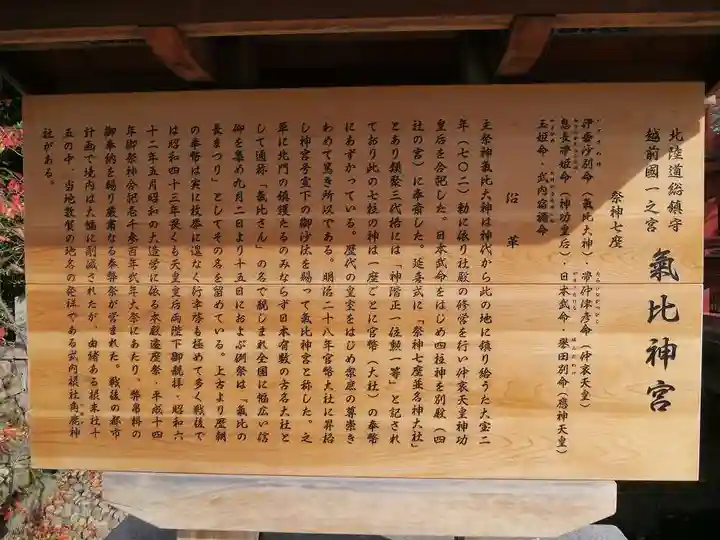 北陸道総鎮守
越前國一之宮
氣比神宮
祭神七座
伊奢沙別命（氣比大神）・帯仲津彦命（仲哀天皇）
息長帯姫命（神功皇后）・日本武命・誉田別命（應神天皇）
玉姫命・武内宿禰命
沿革
主祭神氣比大神は神代から此の地に鎮り給うた大宝二
年（七〇二）勅に依り社殿の修営を行い仲哀天皇神功
皇后を合祀した。日本武命をはじめ四柱神を別殿（四
社の宮）に奉斎した。延喜式に「祭神七座並名神大社」
とあり類聚三代格には「神階正一位勲一等」と記され
ており此の七柱の神は一座ごとに官幣（大社）の奉幣
にあずかっている。歴代の皇室をはじめ衆庶の尊崇き
わめて篤き所以である。明治二十八年官幣大社に昇格
し神宮号宣下の御沙汰を賜って氣比神宮と称した。之
單に北門の鎮護たるのみならず日本有数の古名大社と
して通称「氣比さん」の名で親しまれ全国に幅広い信
仰を集め九月二日より十五日におよぶ例祭は「氣比の
長まつり」としてその名を留めている。上古より歴朝
の奉幣は実に枚挙に遑なく行幸啓も極めて多く戦後で
は昭和四十三年畏くも天皇皇后両陛下御親拝・昭和六
十二年五月昭和の大造営に依る本殿遷座祭・平成十四
年御祭神合祀壱千参百年式年大祭にあたり、幣帛料の
御奉納を賜り厳粛なる奉幣祭が営まれた。戦後の都市
計画で境内は大幅に削減されたが、由緒ある摂末社十
五の中、当地敦賀の地名の発祥である式内摂社角鹿神
社がある。